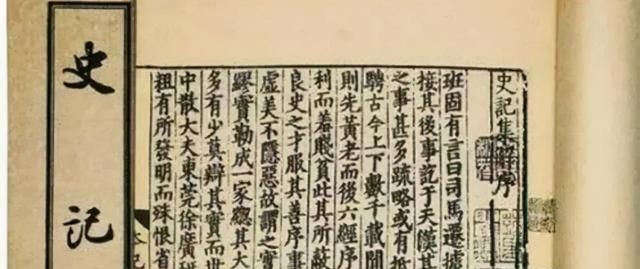 史記
史記集解序
班固有言曰司馬遷據
接其後事訖于天漢其
之事甚多疏略或有抵
騁古今上下數千載間
則先黃老而後六經序
利而羞賤貧此其所蔽
良史之才服其善序事
虛美不隱惡故謂之實
繆實勒成一家總其大
多有少莫辯其實而世
中散大夫東莞徐廣研
粗有所發明而殊恨省